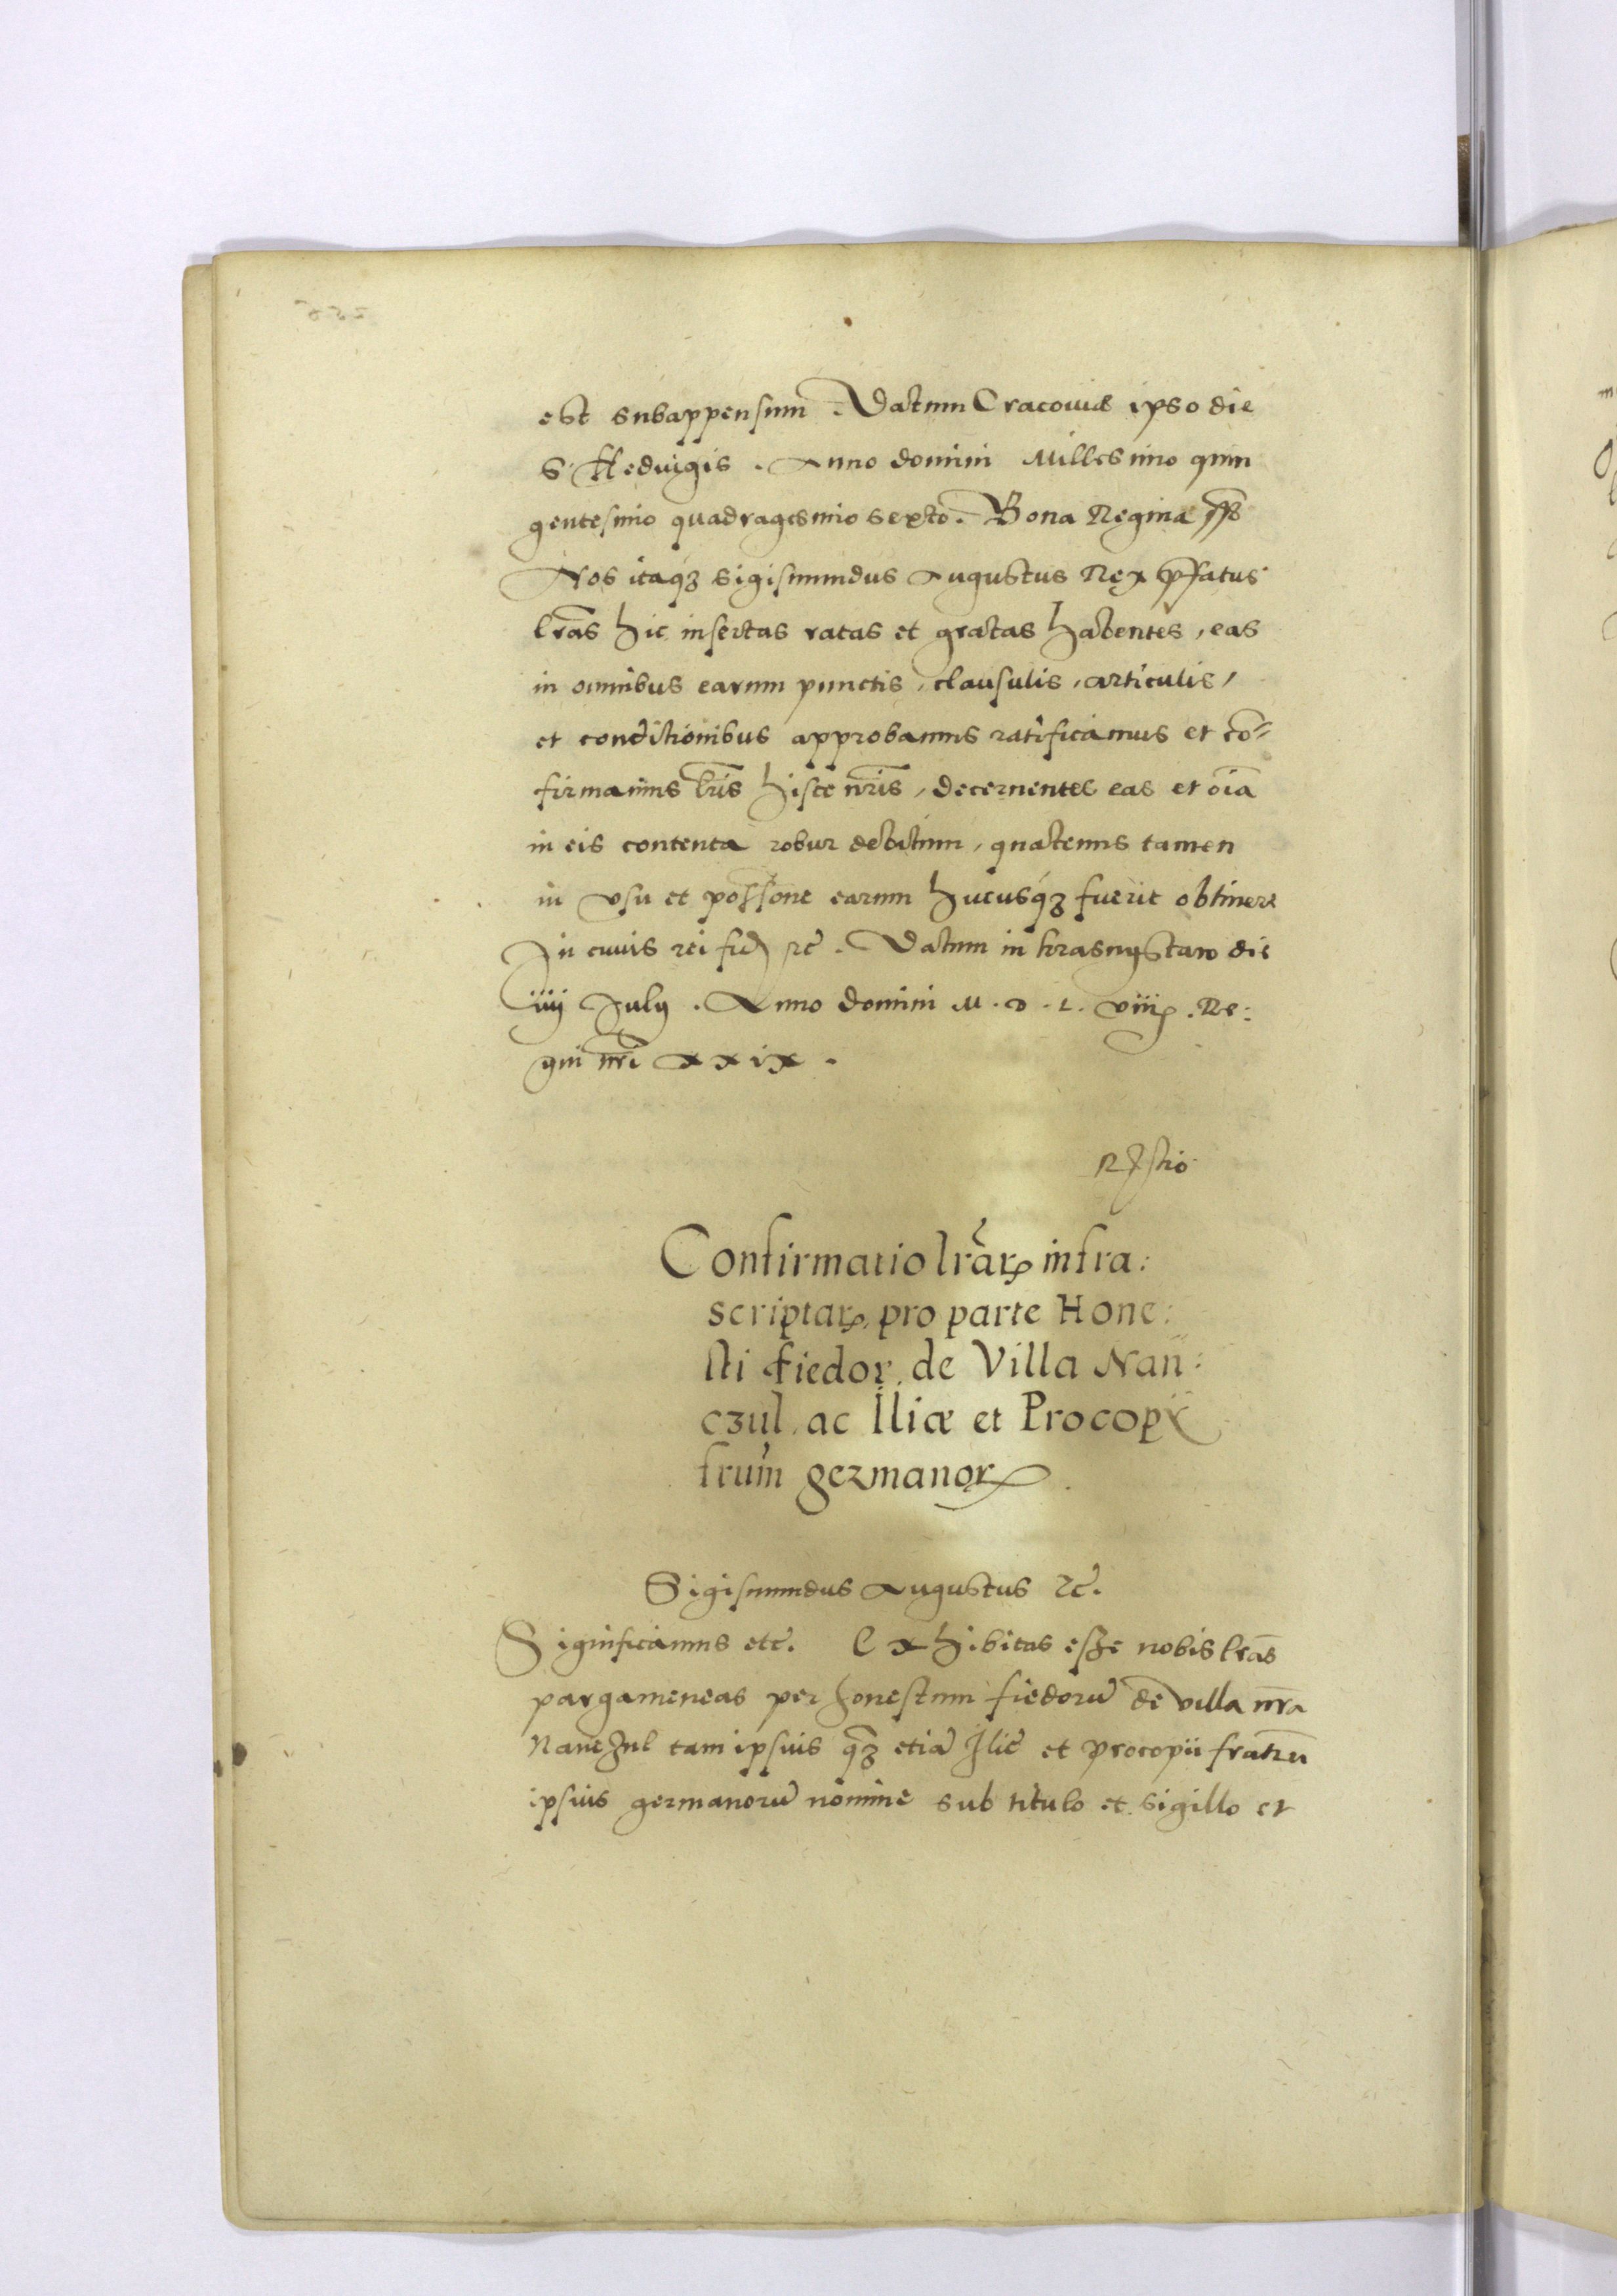 est subappensum. Datum Cracoviæ ipso die
S. Hedvigis. Anno domini Millesimo quin
gentesimo quadragesimo sexto. Bona Regina
Nos itaqȝ Sigismundus Augustus Rex p̃fatus
lr̃as hic insertas ratas et gratas habentes, eas
in omnibus earum punctis, clausulis, articulis,
et conditionibus approbamus ratificamus et co͂=
firmamus lr̃is hisce nr̃is, decernentes eas et oi͂a
in eis contenta robur debitum, quatenus tamen
in usu et poss͂one earum hucusqȝ fuerit obtinere
In cuius rei fid̃ etc͂. Datum in krasnystaw die
iiij July. Anno domini M. D. L. viiij. Re:
gni nr̃i xxix.
Confirmatio lr̃arꝝ infra:
scriptarꝝ pro parte Hone:
sti fiedor de Villa Nan:
czul ac Iliæ et Procopij
frum̃ germanorꝝ.
Sigismundus Augustus etc͂.
Significamus etc͂. Exhibitas esse nobis lr̃as
pargameneas per honestum fiedoru͂ de villa nr̃a
Nanczul tam ipsius q̃ȝ etia͂ Ilie et Procopii fratru͂
ipsius germanoru͂ nomine sub titulo et sigillo et